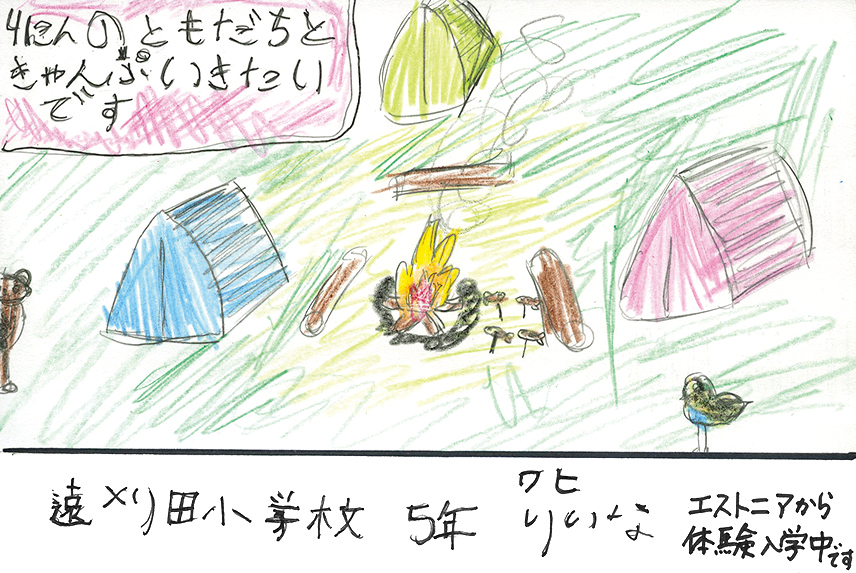 4にんのともだちと
きゃんぷいきたい
です
遠刈田小学校 5年 ワヒ りいな
エストニアから
体験入学中です